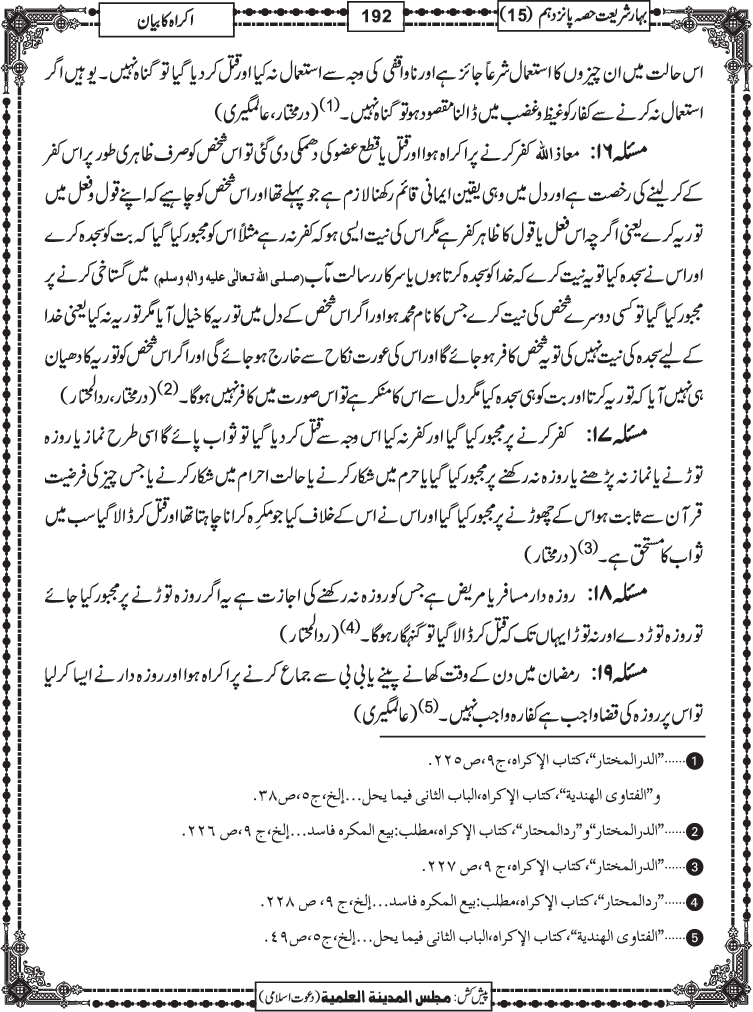 بہارِ شریعت حصہ پانزدہم (15)
192
اکراہ کا بیان
اس حالت میں ان چیزوں کا استعمال شرعاً جائز ہے اور ناواقفی کی وجہ سے استعمال نہ کیا اور قتل کر دیا گیا تو گناہ نہیں۔ یوہیں اگر
استعمال نہ کرنے سے کفار کو غیظ و غضب میں ڈالنا مقصود ہو تو گناہ نہیں۔(1) (درمختار، عالمگیری)
مسئلہ ۱۶: معاذ اللہ کفر کرنے پر اکراہ ہوا اور قتل یا قطع عضو کی دھمکی دی گئی تو اس شخص کو صرف ظاہری طور پر اس کفر
کے کر لینے کی رخصت ہے اور دل میں وہی یقین ایمانی قائم رکھنا لازم ہے جو پہلے تھا اور اس شخص کو چاہیے کہ اپنے قول و فعل میں
توریہ کرے یعنی اگرچہ اس فعل یا قول کا ظاہر کفر ہے مگر اس کی نیت ایسی ہو کہ کفر نہ رہے مثلاً اس کو مجبور کیا گیا کہ بت کو سجدہ کرے
اور اس نے سجدہ کیا تو یہ نیت کرے کہ خدا کو سجدہ کرتا ہوں یا سرکار رسالت مآب (صلی اللہ تعالٰی علیہ واٰلہٖ وسلم) میں گستاخی کرنے پر
مجبور کیا گیا تو کسی دوسرے شخص کی نیت کرے جس کا نام محمد ہو اور اگر اس شخص کے دل میں توریہ کا خیال آیا مگر توریہ نہ کیا یعنی خدا
کے لیے سجدہ کی نیت نہیں کی تو یہ شخص کافر ہو جائے گا اور اس کی عورت نکاح سے خارج ہو جائے گی اور اگر اس شخص کو توریہ کا دھیان
ہی نہیں آیا کہ توریہ کرتا اور بت کو ہی سجدہ کیا مگر دل سے اس کا منکر ہے تو اس صورت میں کافر نہیں ہوگا۔(2) (درمختار، ردالمحتار)
مسئلہ ۱۷: کفر کرنے پر مجبور کیا گیا اور کفر نہ کیا اس وجہ سے قتل کر دیا گیا تو ثواب پائے گا اسی طرح نماز یا روزہ
توڑنے یا نماز نہ پڑھنے یا روزہ نہ رکھنے پر مجبور کیا گیا یا حرم میں شکار کرنے یا حالت احرام میں شکار کرنے یا جس چیز کی فرضیت
قرآن سے ثابت ہو اس کے چھوڑنے پر مجبور کیا گیا اور اس نے اس کے خلاف کیا جو مکرِہ کرانا چاہتا تھا اور قتل کر ڈالا گیا سب میں
ثواب کا مستحق ہے۔(3) (درمختار)
مسئلہ ۱۸: روزہ دار مسافر یا مریض ہے جس کو روزہ نہ رکھنے کی اجازت ہے یہ اگر روزہ توڑنے پر مجبور کیا جائے
تو روزہ توڑ دے اور نہ توڑا یہاں تک کہ قتل کر ڈالا گیا تو گنہگار ہوگا۔(4) (ردالمحتار)
مسئلہ ۱۹: رمضان میں دن کے وقت کھانے پینے یا بی بی سے جماع کرنے پر اکراہ ہوا اور روزہ دار نے ایسا کر لیا
تو اس پر روزہ کی قضا واجب ہے کفارہ واجب نہیں۔(5) (عالمگیری)
1 ......”الدرالمختار“، کتاب الإکراہ، ج۹، ص۲۲۵.
و”الفتاوی الھندیة“، کتاب الإکراہ، الباب الثانی فیما یحل...إلخ، ج۵، ص۳۸.
2 ......”الدرالمختار“و”ردالمحتار“، کتاب الإکراہ، مطلب: بیع المکرہ فاسد...إلخ، ج۹، ص۲۲۶.
3 ......”الدرالمختار“، کتاب الإکراہ، ج۹، ص۲۲۷.
4 ......”ردالمحتار“، کتاب الإکراہ، مطلب: بیع المکرہ فاسد...إلخ، ج۹، ص۲۲۸.
5 ......”الفتاوی الھندیة“، کتاب الإکراہ، الباب الثانی فیما یحل...إلخ، ج۵، ص۴۹.
پیش کش: مجلس المدینة العلمیة (دعوت اسلامی)